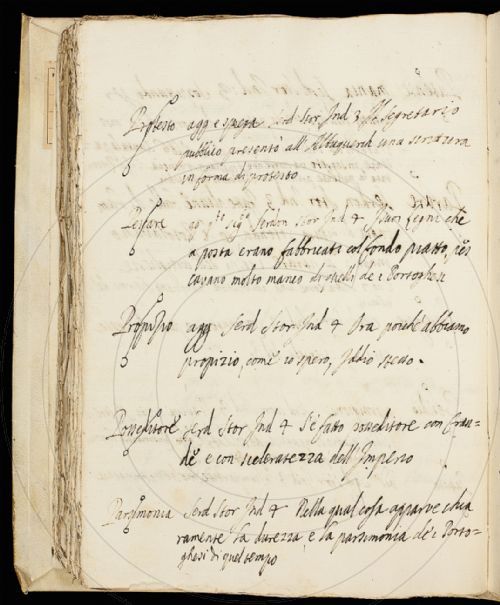 Protesto agg e spega Serd Stor Ind 3 Il Segretario
publico presentò all' Albuquerch una scrittura
in forma di protesto
Pescare Serdon Stor Ind 4 I suoi legni che
a posta erano fabbricati col fondo piatto, pes
cavano molto manco di quelli de i Portoghesi
Propizio agg Serd Stor Ind 4 Ora poiché abbiamo
propizio, come io spero, Iddio stesso.
Possditore Serd Stor Ind 4 S'è fatto possditore con frau=
de e con sceleratezza dell' Imperio
Parsimonia Serd Stor Ind 4 Nella qual cosa apparve chia
ramente la durezza e la parsimonia de i Porto=
ghesi di quel tempo